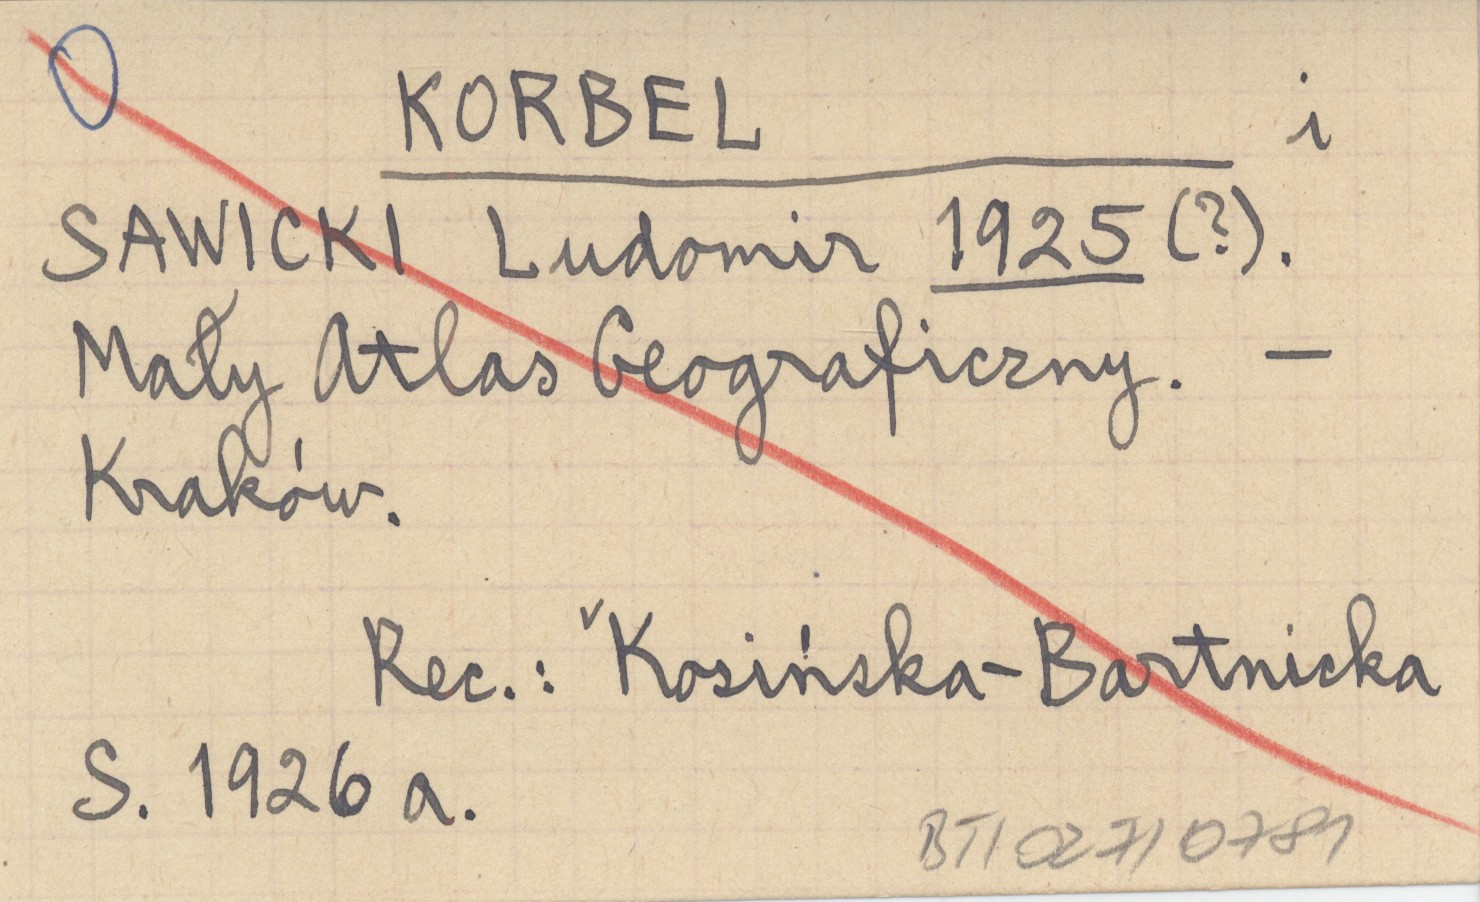 KORBEL i
SAWICKI Ludomir 1925 (?).
Mały Atlas Geograficzny. –
Kraków.
Rec.: Kosińska-Bartnicka
S. 1926 a.
BT/027/0781